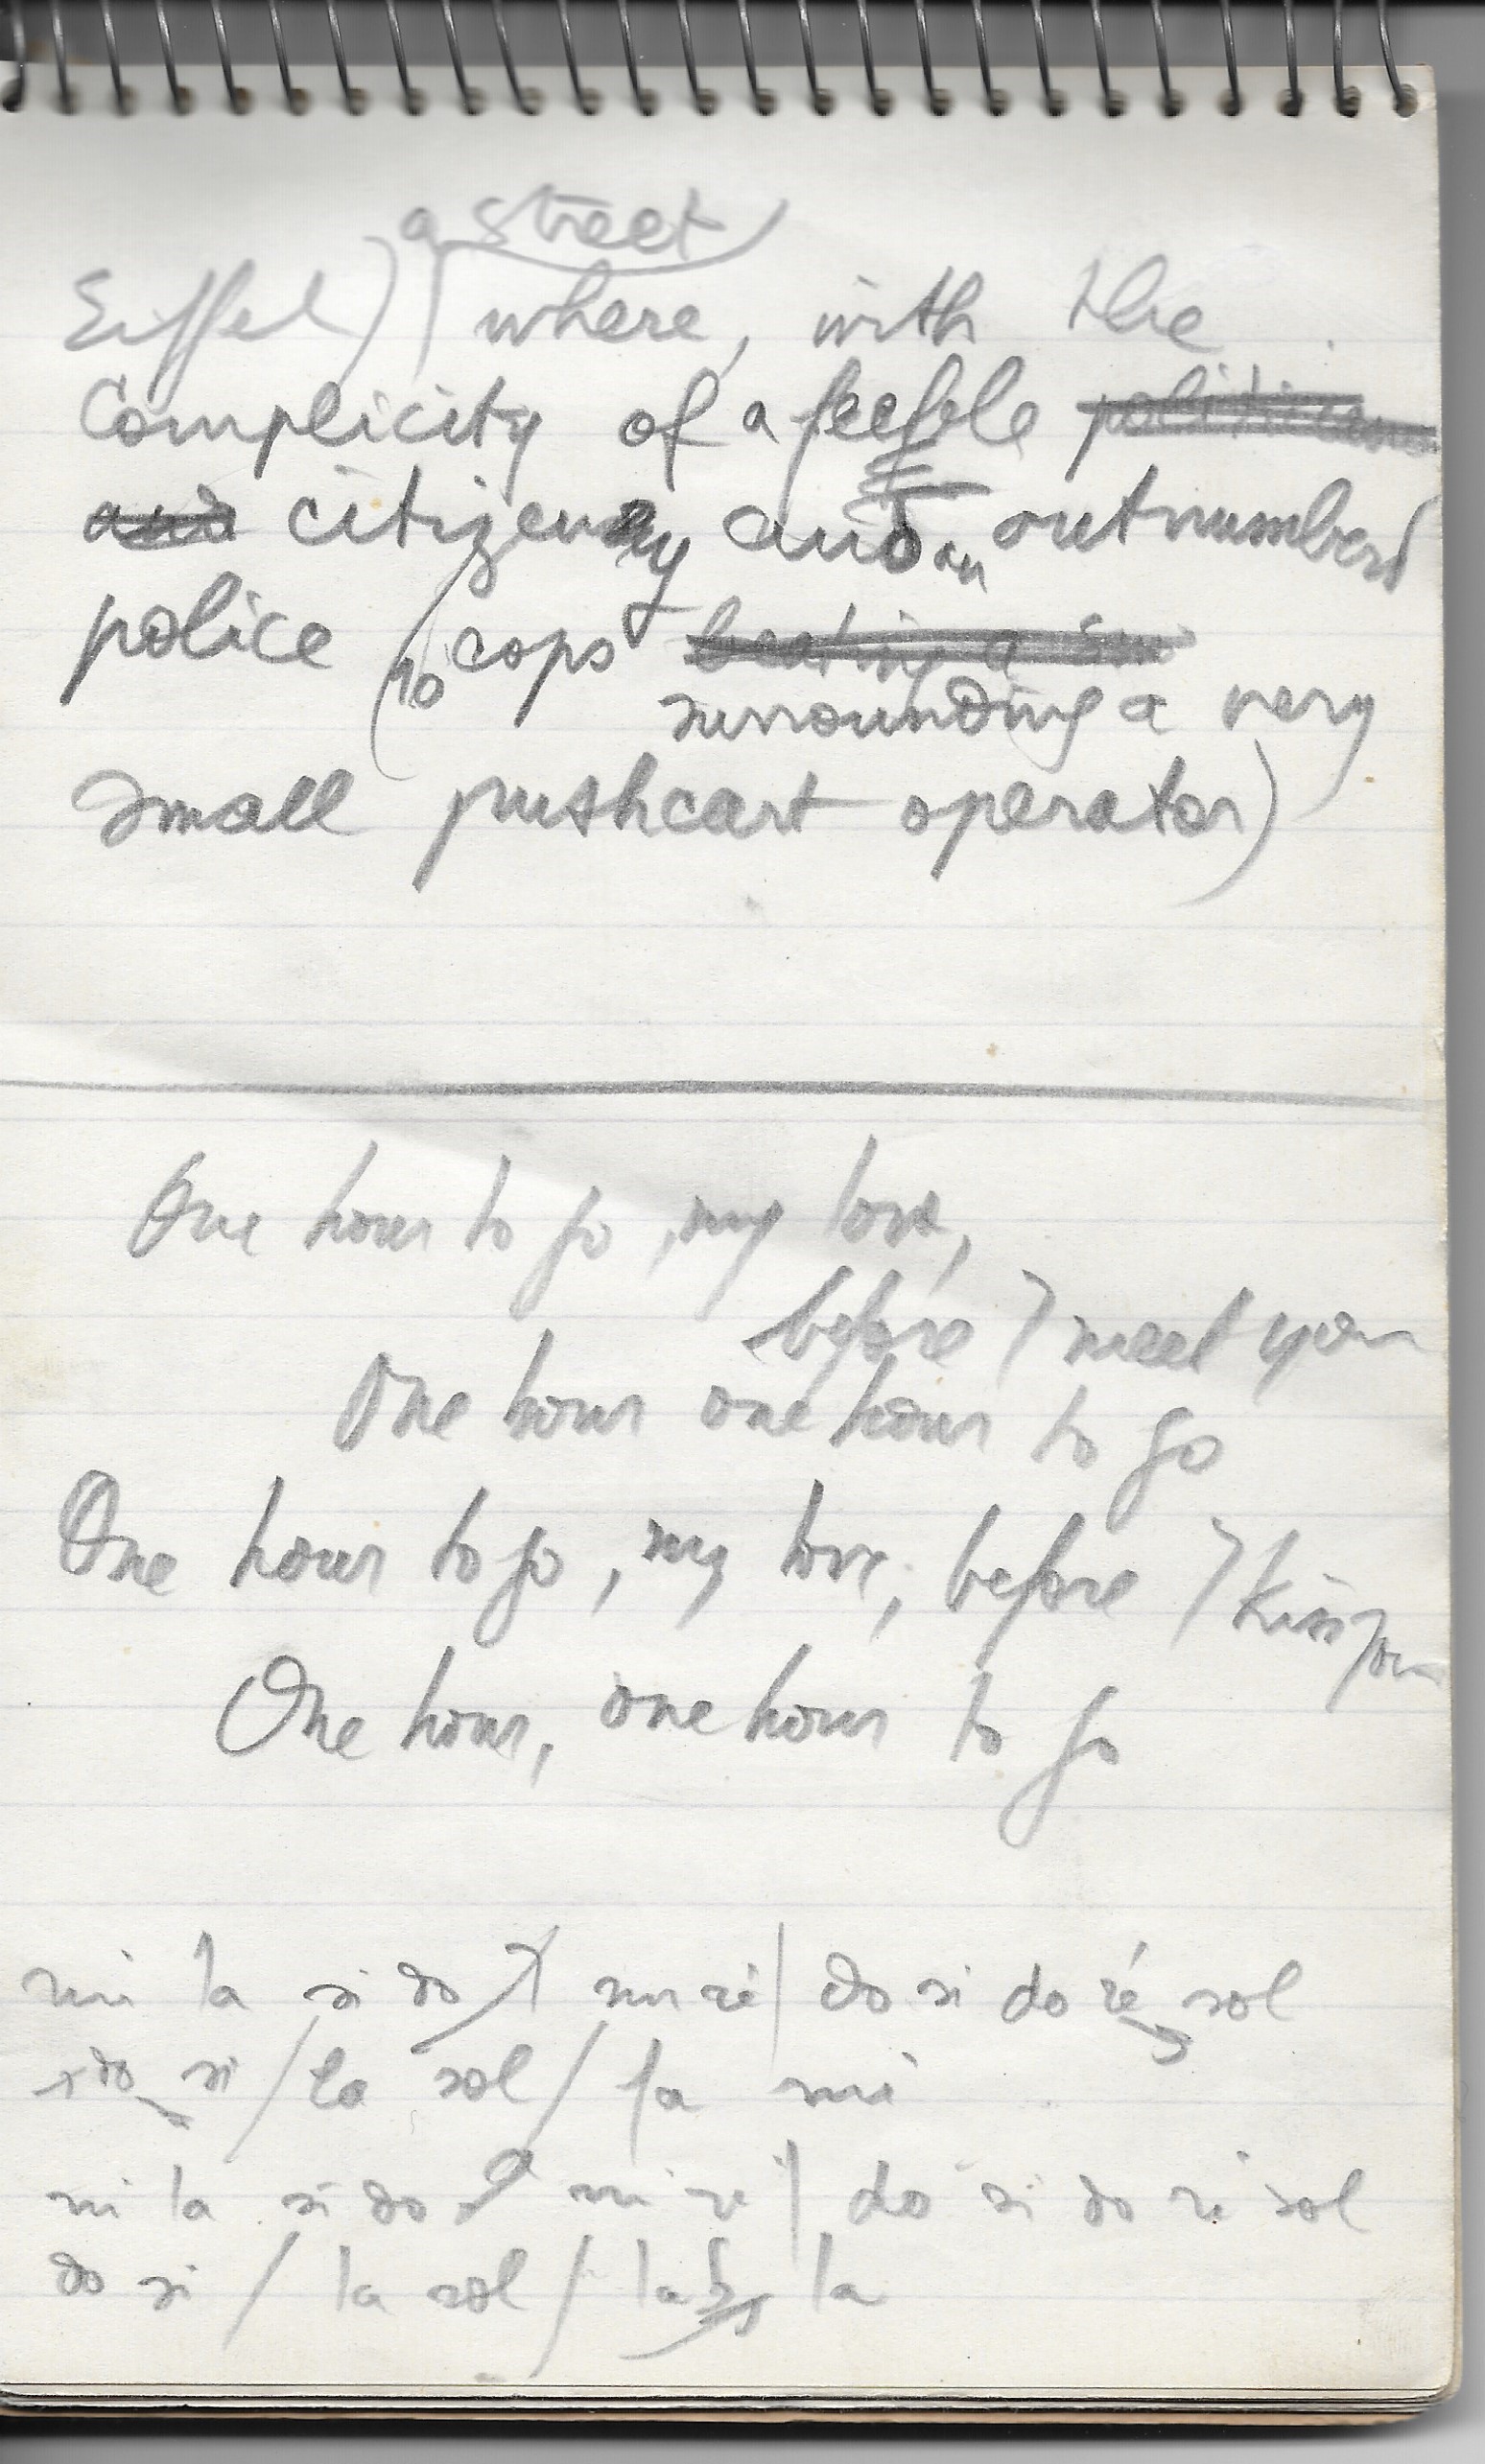 a street
Eiffel) where, with the
Complicity of a feeble politicians
and citizenry and an outnumbered
police (10 cops beating a
surrounding a very
small pushcart operator)
One hour to go, my love,
before I meet you
One hour one hour to go
One hour to go, my love, before I kiss you
One hour, one hour to go
mi la si do / mi ré | do si do ré sol
do si / la sol / fa mi
mi la si do mi ré | do si do ré sol
do si / la sol / la la